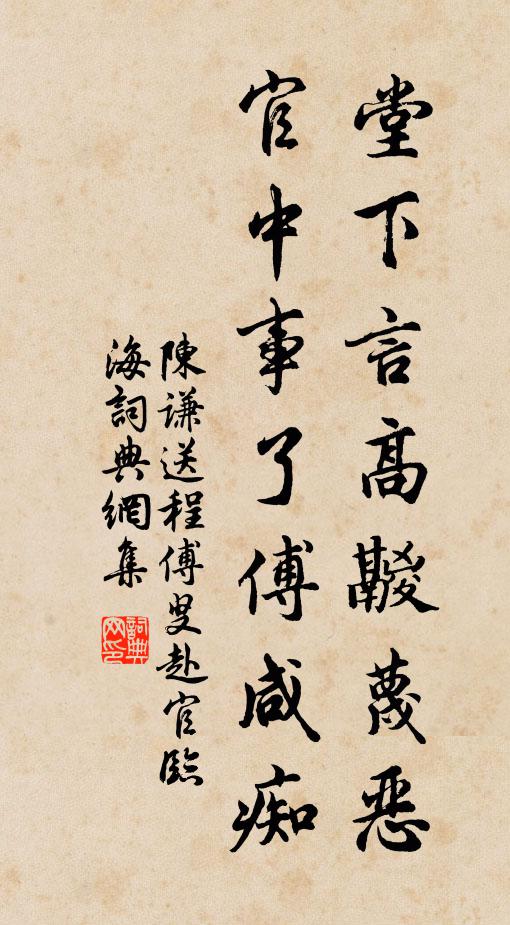 堂下言高鬷蔑惡
官中事了傅咸痴
陳謙送程傅叟赴官臨
海詞典網集
詞典網印